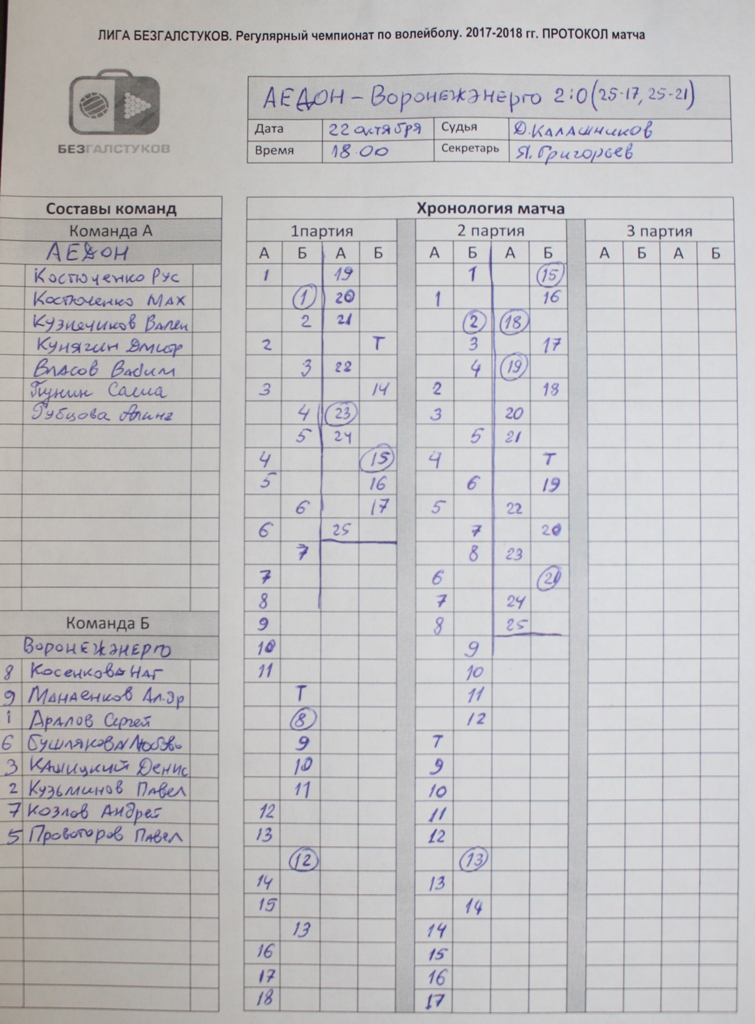 ЛИГА БЕЗГАЛСТУКОВ. Регулярный чемпионат по волейболу. 2017-2018 гг. ПРОТОКОЛ матча
БЕЗГАЛСТУКОВ
АЕДОН – Воронежэнерго 2:0 (25-17, 25-21)
Дата 22 октября Судья Д. Калашников
Время 18 00 Секретарь Я. Григорьев
Составы команд
Команда А
АЕДОН
Костюченко Рус
Костюченко Мах
Кузнечиков Вален
Кунягин Дмитр
Власов Вадим
Пунин Саша
Губцова Алина
Команда Б
Воронежэнерго
8 Косенкова Нат
9 Манаенков Ал-др
1 Аралов Сергей
6 Бушлякова Любовь
3 Кашицкий Денис
2 Кузьминов Павел
7 Козлов Андрей
5 Провоторов Павел
Хронология матча
1партия 2 партия 3 партия
А Б А Б А Б А Б А Б А Б
1 19 1 15
1 20 1 16
2 21 2 18
2 Т 3 17
3 22 4 19
3 14 2 18
4 23 3 20
5 24 5 21
4 15 4 Т
5 16 6 19
6 17 5 22
6 25 7 20
7 8 23
7 6 21
8 7 24
9 8 25
10 9
11 10
Т 11
8 12
9 Т
10 9
11 10
12 11
13 12
12 13
14 13
15 14
13 14
16 15
17 16
18 17